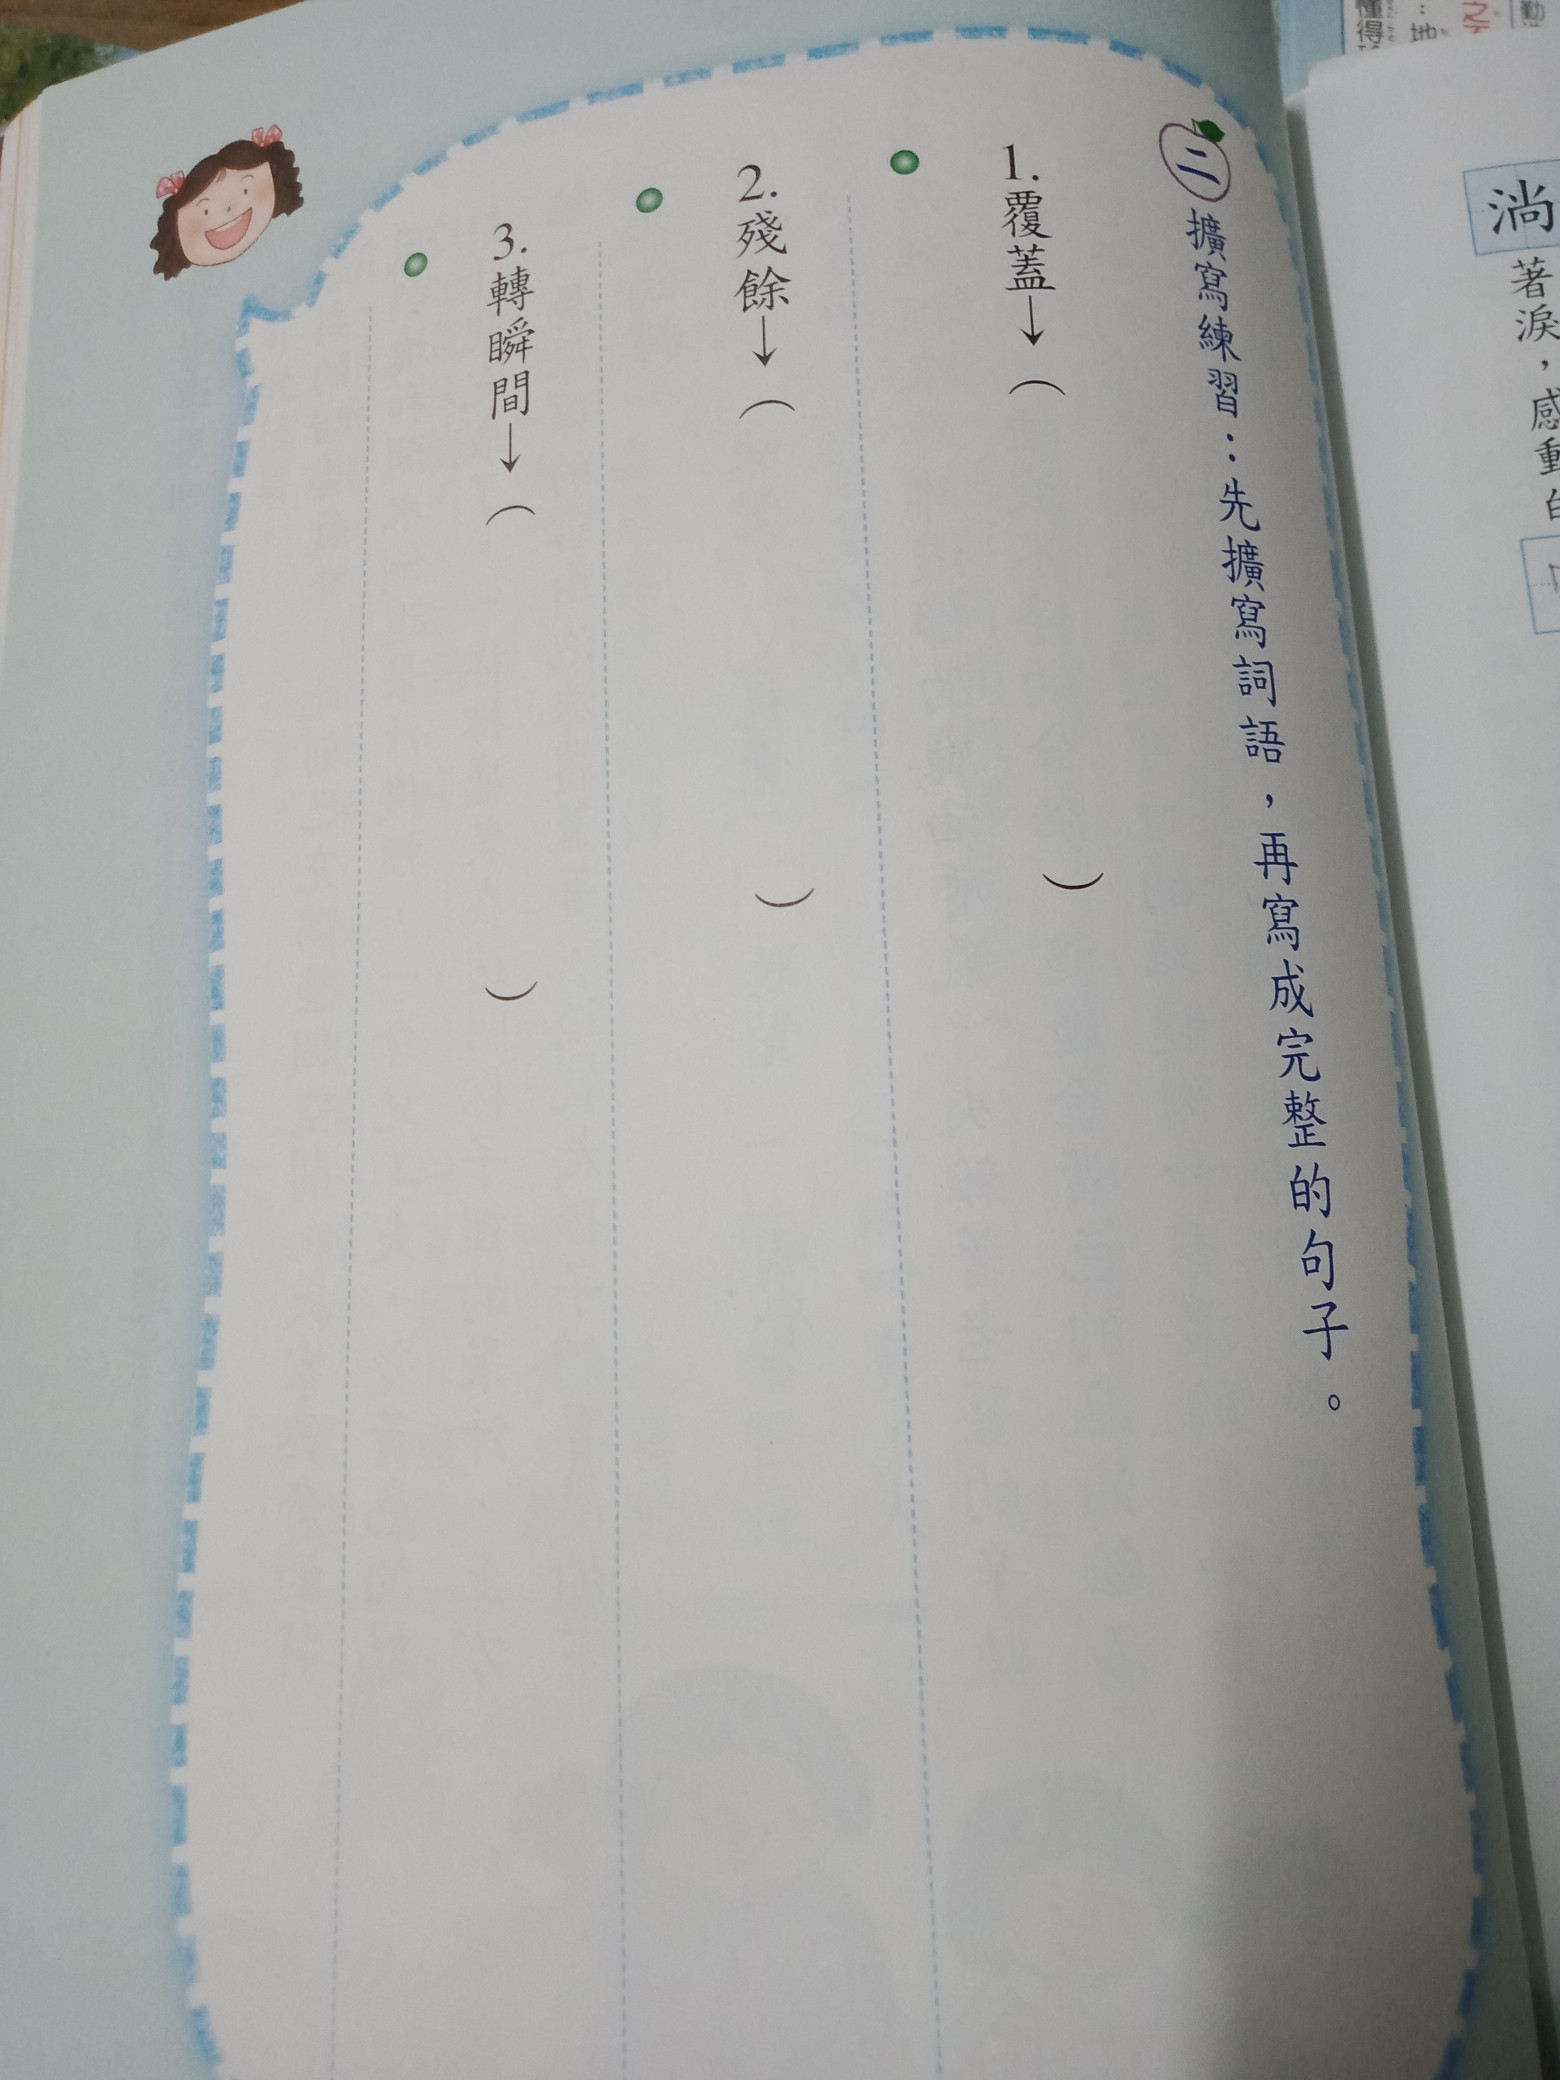 懂得
：地
勤
淌著淚，感動
二 擴寫練習：先擴寫詞語，再寫成完整的句子。
1.覆蓋→（　）
2.殘餘→（　）
3.轉瞬間→（　）